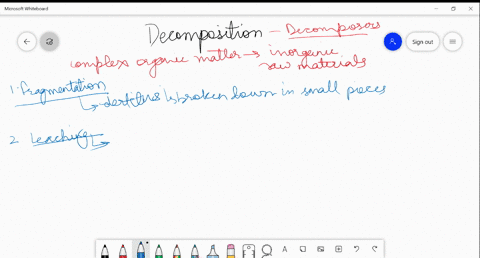 Microsoft Whiteboard
Sign out
Decomposition - Decomposers
complex organic matter → inorganic
raw materials
1. fragmentation
↳ detritus is broken down in small pieces
2 leaching
A